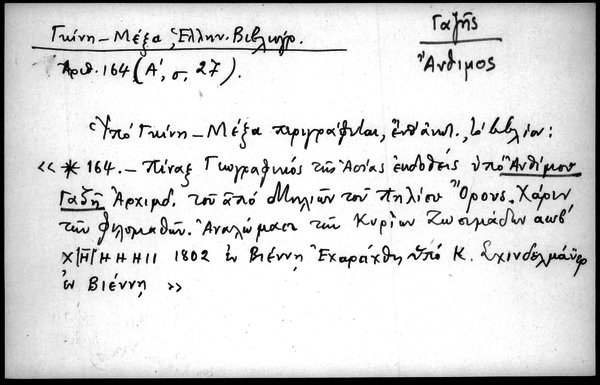 Γκίνη – Μέξα, Ἑλλην. Βιβλιογρ.
Ἀριθ. 164 (Α', σ. 27).
Γαζῆς
Ἄνθιμος
Ὑπὸ Γκίνη – Μέξα περιγράφεται, ἔνθ' ἀνωτ., τὸ βιβλίον:
«✶ 164. – Πίναξ Γεωγραφικὸς τῆς Ἀσίας ἐκδοθεὶς ὑπὸ Ἀνθίμου
Γαζῆ Ἀρχιμ. τοῦ ἀπὸ Μηλιῶν τοῦ Πηλίου Ὄρους. Χάριν
τῶν φιλομαθῶν. Ἀναλώμασι τῶν Κυρίων Ζωσιμάδων αωβ'
Χ|Η|ΗΗΗΙΙ 1802 ἐν Βιέννῃ Ἐχαράχθη ὑπὸ Κ. Σχινδελμάϋερ
ἐν Βιέννῃ »